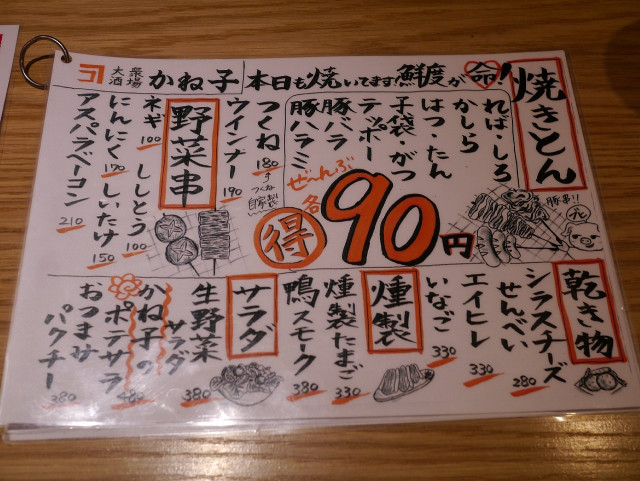 大衆酒場 かね子
本日も焼いてます!鮮度が命!
焼きとん
ればー・しろ
かしら
はつ・たん
子袋・がつ
テッポー
豚バラ
豚ハラミ
ぜ〜んぶ
各
得 90円
豚串!!
つくね 180
つくね自家製
ウインナー 190
野菜串
ネギ 100 ししとう 100
にんにく 170 しいたけ 150
アスパラベーコン 210
乾き物
シラスチーズせんべい 280
エイヒレ 330
いなご 330
燻製
燻製たまご 330
鴨スモーク 380
サラダ
生野菜サラダ 380
かね子のポテサラ 480
おつまサパクチー 380